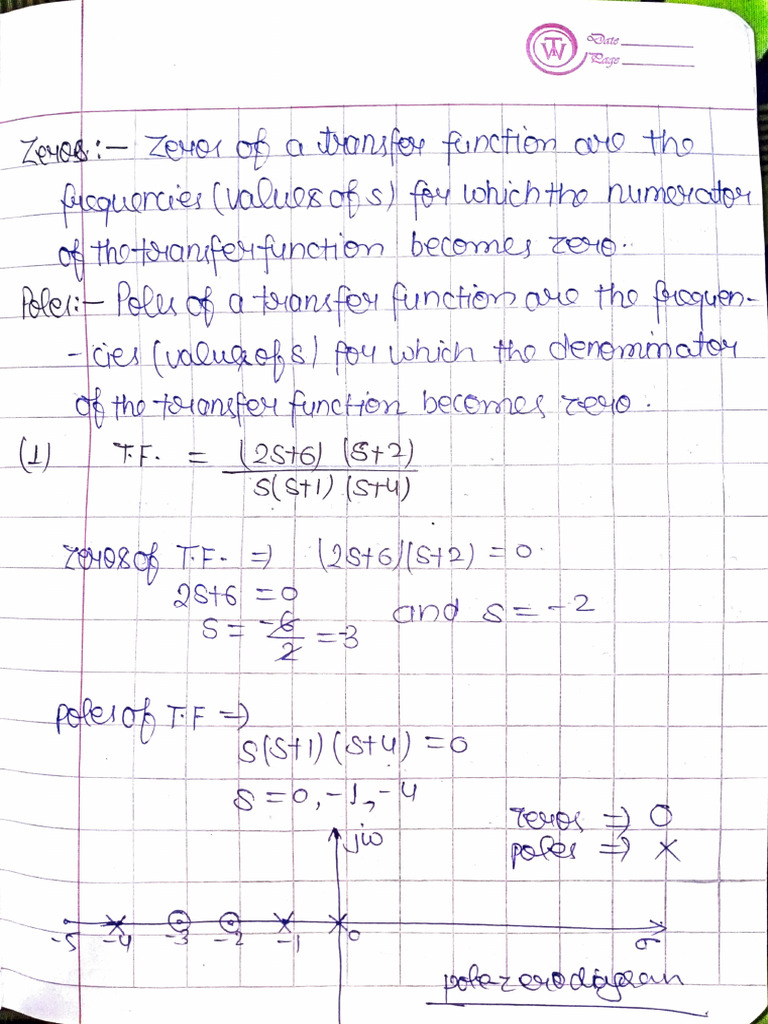 TW
Date
Page
Zeros:- Zeros of a transfer function are the
frequencies (values of s) for which the numerator
of the transfer function becomes zero.
Poles:- Poles of a transfer function are the frequen-
-cies (values of s) for which the denominator
of the transfer function becomes zero.
(1) T.F. = (2s+6) (s+2)
s(s+1) (s+4)
zeros of T.F. ⇒ (2s+6)(s+2) = 0
2s+6 = 0
s = -6/2 = -3 and s = -2
poles of T.F ⇒
s(s+1) (s+4) = 0
s = 0, -1, -4
zeros ⇒ O
poles ⇒ ×
jω
-5 -4 -3 -2 -1 0 σ
pole zero diagram